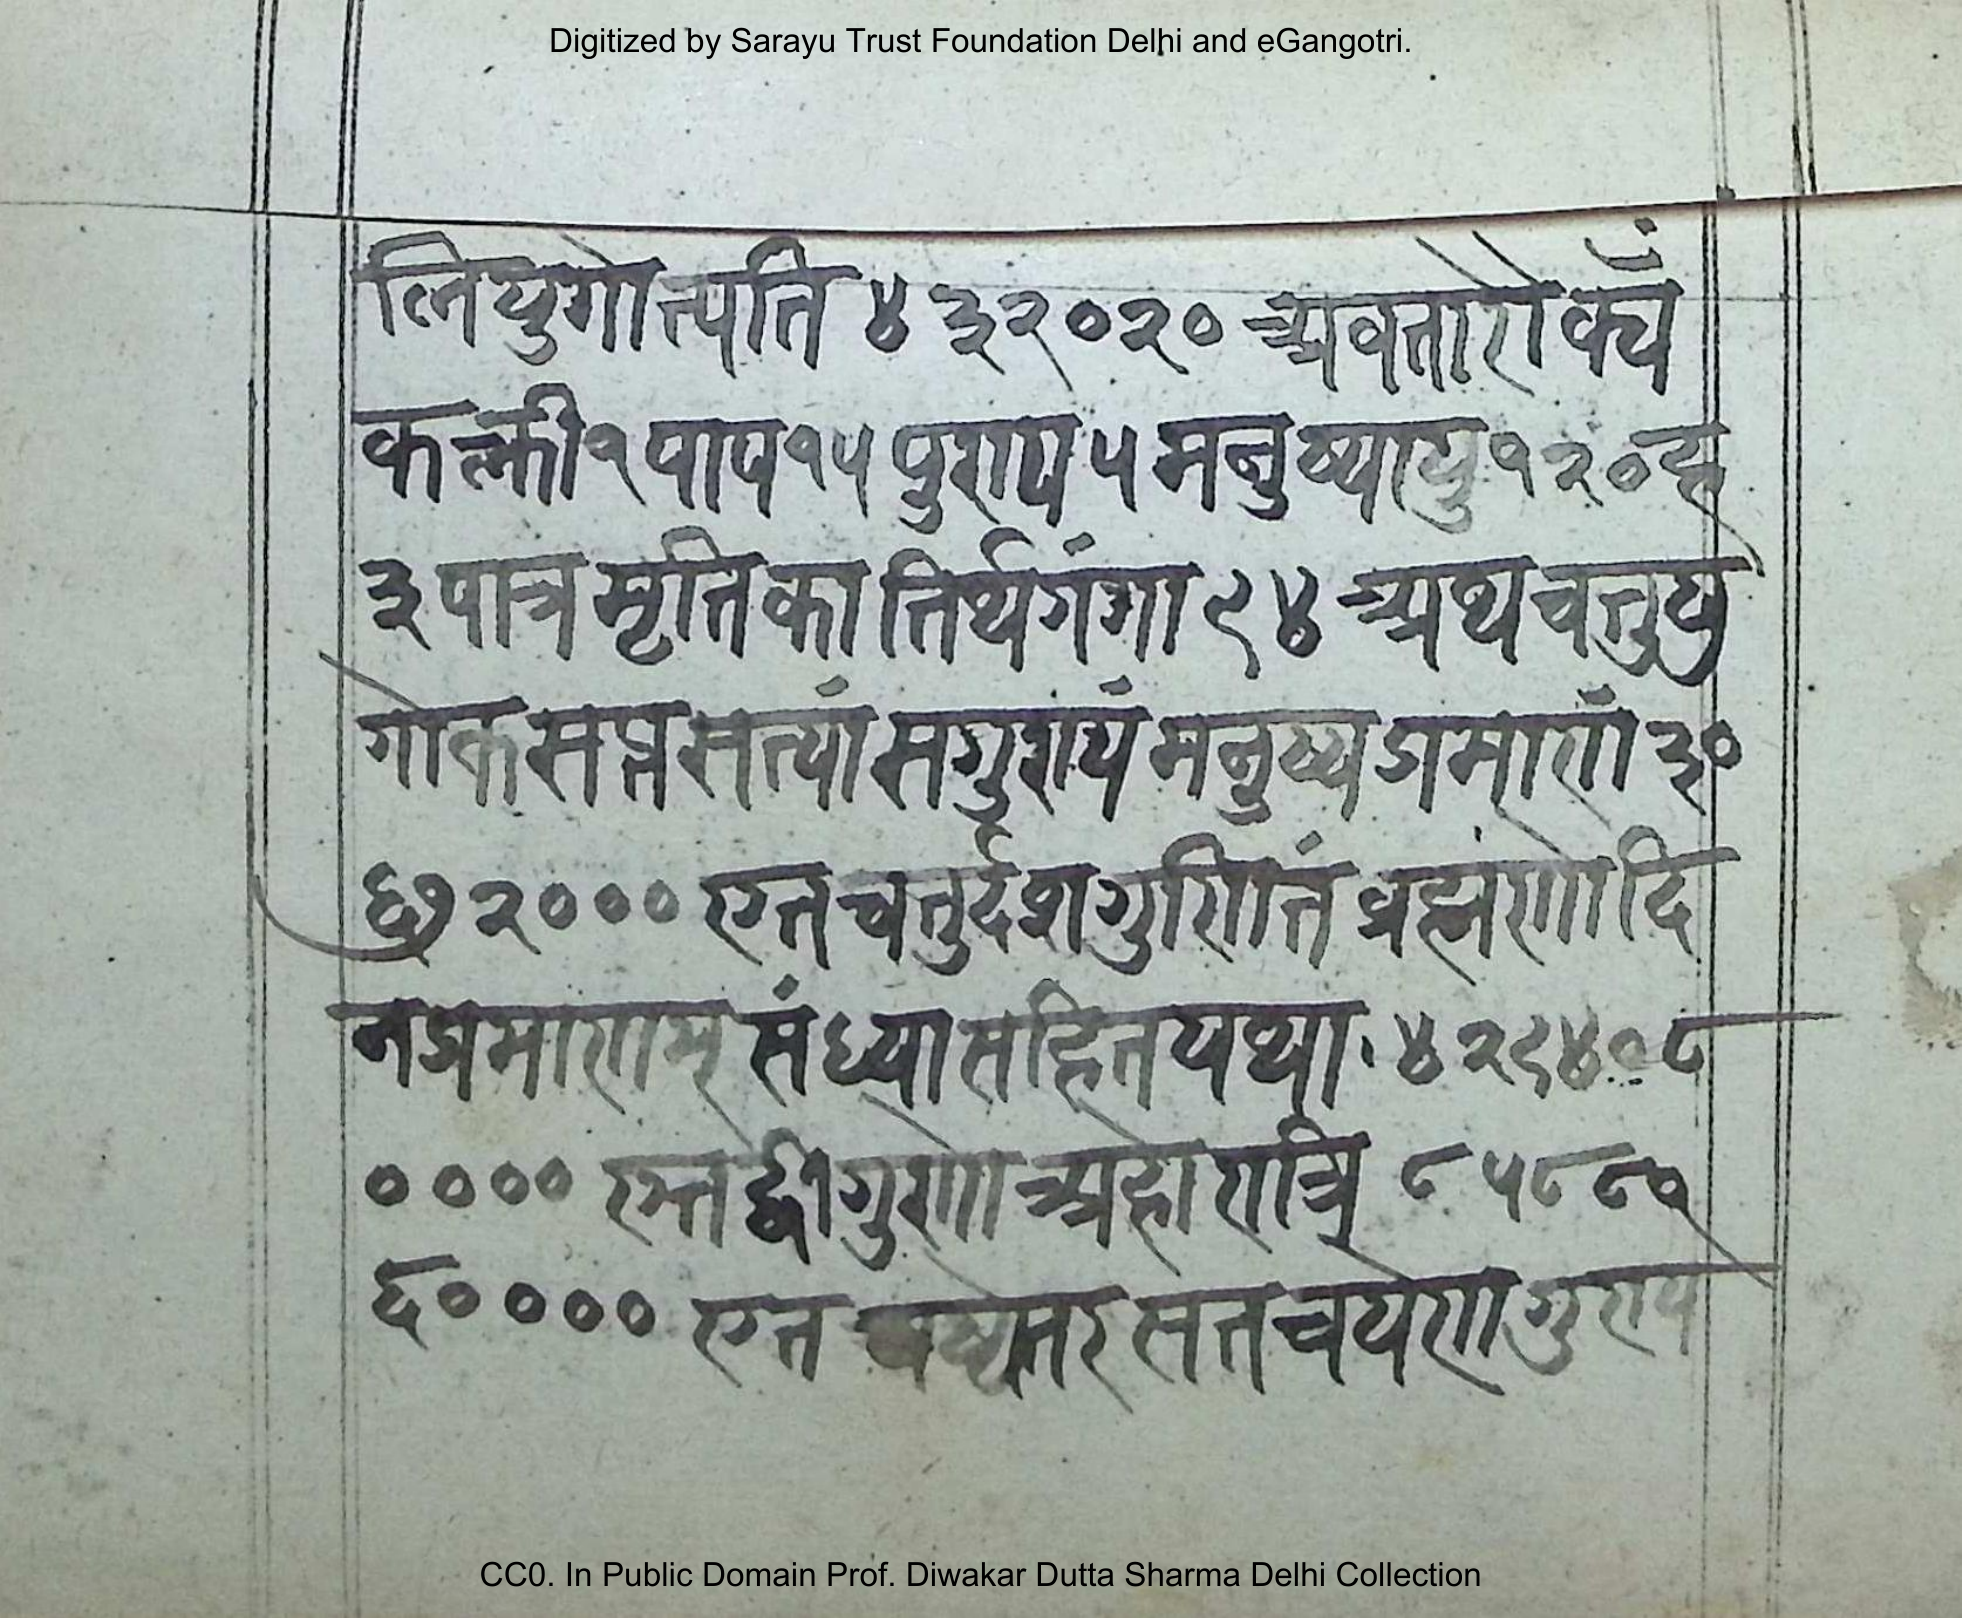 Digitized by Sarayu Trust Foundation Delhi and eGangotri.
लियुगोत्पति ४३२०२० अवतारो
कल्की १ पाप १५ पुराय ५ मनुष्यायु १२० ह
३ पात्र मृतिका तिर्थगंगा ९४ अथ चतुयु
गोक सप्त सत्यां सगुरायं मनुष्य प्रमाराां ३०
६७२०००० एत चतुर्दश गुरिातं ब्रह्मंराो दि
न प्रमाराम् संध्या सहित यथा ४२९४०८
०००० एत द्वीगुराो अहोरात्रि ८५८८१
६०००० एत सत चयेरा गुराय
CC0. In Public Domain Prof. Diwakar Dutta Sharma Delhi Collection